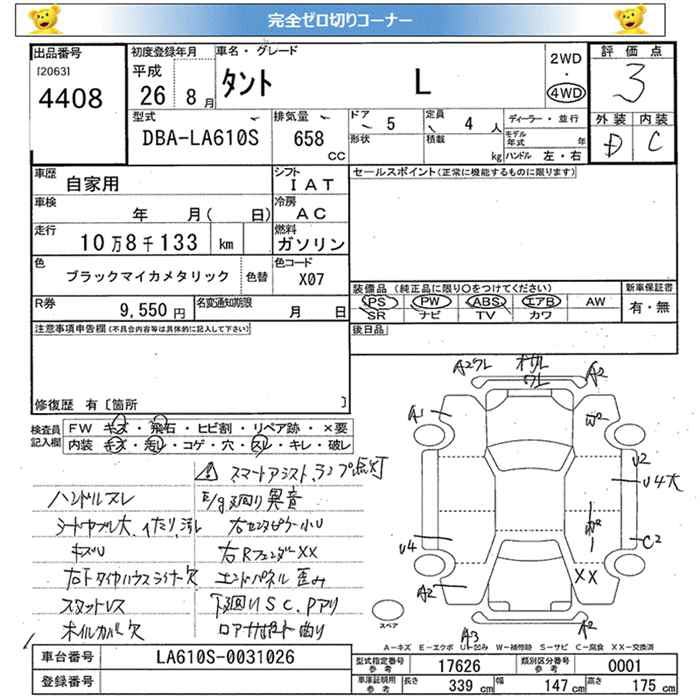 完全ゼロ切りコーナー
出品番号
[2063]
4408
初度登録年月
平成
26 8月
車名・グレード
タント L
2WD
・
4WD
評価点
3
外装 内装
D C
型式
DBA-LA610S
排気量
658
CC
ドア 5
形状
定員 4 人
積載 kg
ディーラー・並行
モデル年式 年
ハンドル 左・右
車歴 自家用
シフト IAT
車検 年 月( 日)
冷房 AC
走行 10万8千133 km
燃料 ガソリン
色 ブラックマイカメタリック 色替
色コード X07
R券 9,550円
名変通知期限 月 日
セールスポイント(正常に機能するものに限ります)
装備品(純正品に限り○をつけてください)
PS PW ABS エアB AW
SR ナビ TV カワ
新車保証書
有・無
後日品
注意事項申告欄(不具合内容等は具体的に記入して下さい)
修復歴 有〔箇所 〕
検査員記入欄
FW キズ・飛石・ヒビ割・リペア跡・×要
内装 キズ・汚レ・コゲ・穴・スレ・キレ・破レ
スマートアシストランプ点灯
ハンドルスレ
E/g廻り異音
シートヤブレ大、イタミ、汚レ
右センタピラー小U
キズU
右RフェンダーXX
右Fタイヤハウスライナー欠
エンドパネル歪み
スタットレス
下廻りSC、Pアリ
オイルカバー欠
ロアサポート曲り
A2ワレ
A2
A1
W2
U2
U4大
U4
C2
XX
A2
A3
A2
スペア
A-キズ E-エクボ U-凹み W-補修跡 S-サビ C-腐食 XX-交換済
車台番号 LA610S-0031026
登録番号
型式指定番号 参考 17626
類別区分番号 参考 0001
車庫証明用 参考 長さ 339 cm 幅 147 cm 高さ 175 cm